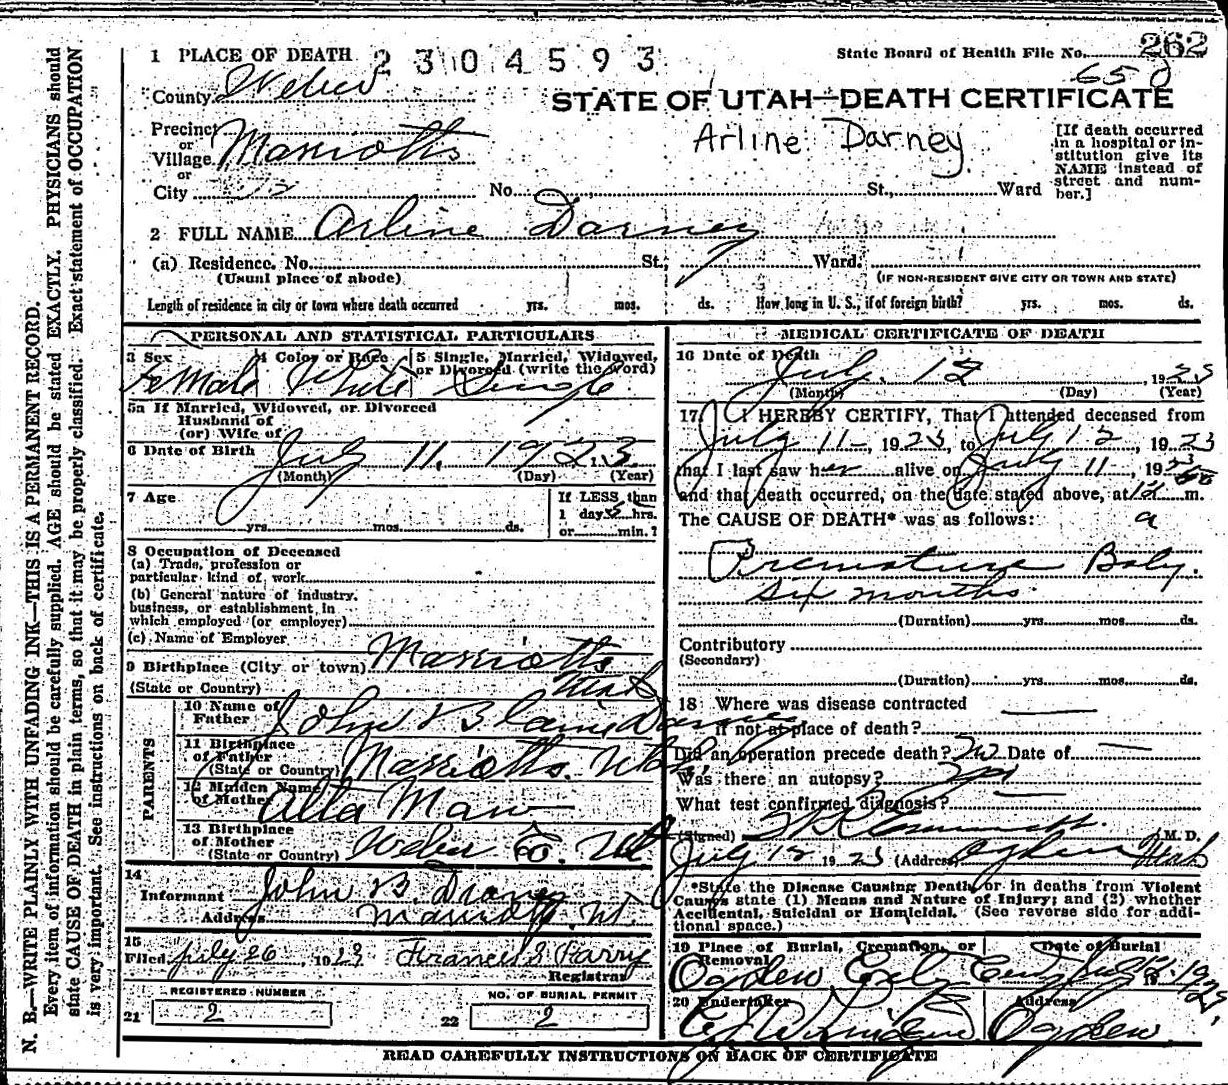 262
1 PLACE OF DEATH 2304593 State Board of Health File No.
650
County Weber
STATE OF UTAH—DEATH CERTIFICATE
Arline Darney
Precinct
or
Village Marriotts
or
City 12 No. St., Ward
[If death occurred
in a hospital or in-
stitution give its
NAME instead of
street and num-
ber.]
2 FULL NAME Arline Darney
(a) Residence. No. St., Ward.
(Usual place of abode) (IF NON-RESIDENT GIVE CITY OR TOWN AND STATE)
Length of residence in city or town where death occurred yrs. mos. ds. How long in U. S., if of foreign birth? yrs. mos. ds.
PERSONAL AND STATISTICAL PARTICULARS
3 Sex 4 Color or Race 5 Single, Married, Widowed,
or Divorced (write the word)
Female White Single
5a If Married, Widowed, or Divorced
Husband of
(or) Wife of
6 Date of Birth July 11, 1923
(Month) (Day) (Year)
7 Age If LESS than
1 day hrs.
yrs. mos. ds. or min.?
8 Occupation of Deceased
(a) Trade, profession or
particular kind of work
(b) General nature of industry,
business, or establishment in
which employed (or employer)
(c) Name of Employer
9 Birthplace (City or town) Marriotts
(State or Country) Utah
PARENTS
10 Name of
Father John Blaine Darney
11 Birthplace
of Father
(State or Country) Marriotts. Utah.
12 Maiden Name
of Mother Alta Maw
13 Birthplace
of Mother
(State or Country) Weber Co. Ut
14
Informant John B. Darney
Address Marriott, Ut.
15
Filed July 26, 1923 Frances S Harry
Registrar
REGISTERED NUMBER NO. OF BURIAL PERMIT
21 2 22 2
MEDICAL CERTIFICATE OF DEATH
16 Date of Death
July. 12, 1923
(Month) (Day) (Year)
17 I HEREBY CERTIFY, That I attended deceased from
July 11 - 1923, to July 12, 1923
that I last saw her alive on July 11, 1923
and that death occurred, on the date stated above, at 12 m.
a
The CAUSE OF DEATH* was as follows:
Premature Baby.
six months
(Duration) yrs. mos. ds.
Contributory
(Secondary)
(Duration) yrs. mos. ds.
18 Where was disease contracted
if not at place of death?
Did an operation precede death? no Date of
Was there an autopsy? no
What test confirmed diagnosis?
(Signed) M. D.
July 12 1923 (Address) Ogden Utah
*State the Disease Causing Death, or in deaths from Violent
Causes state (1) Means and Nature of Injury; and (2) whether
Accidental, Suicidal or Homicidal. (See reverse side for addi-
tional space.)
19 Place of Burial, Cremation, or
Removal Date of Burial
Ogden City Cem July 12 1923,
20 Undertaker Address
Ogden
READ CAREFULLY INSTRUCTIONS ON BACK OF CERTIFICATE
N. B.—WRITE PLAINLY WITH UNFADING INK—THIS IS A PERMANENT RECORD.
Every item of information should be carefully supplied. AGE should be stated EXACTLY. PHYSICIANS should
state CAUSE OF DEATH in plain terms, so that it may be properly classified. Exact statement of OCCUPATION
is very important. See instructions on back of certificate.